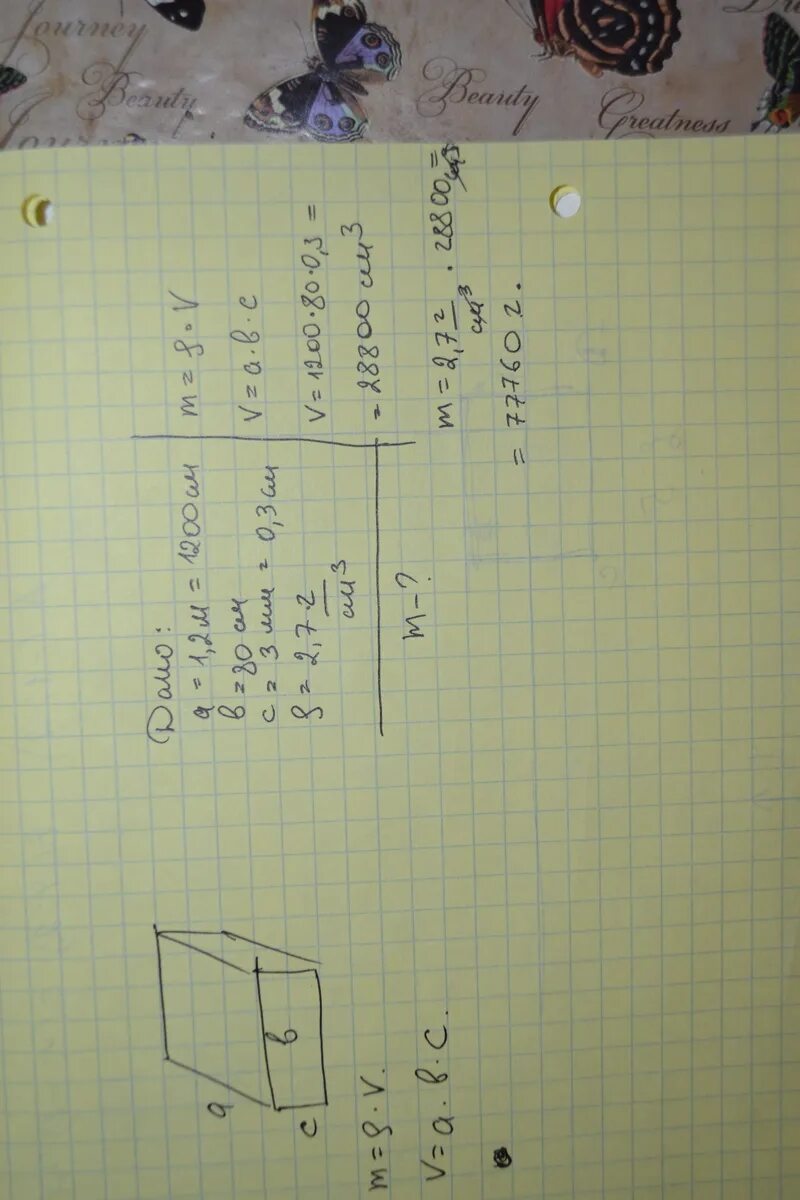 Journey
Beauty
Beauty
Greatness
Journey
Дано:
a = 1,2м = 1200см
в = 80 см
с = 3 мм = 0,3 см
ρ = 2,7 г/см³
m - ?
m = ρ · V
V = a · в · с
V = 1200 · 80 · 0,3 =
= 28800 см³
m = 2,7 г/см³ · 28800 см³ =
= 77760 г.
a
в
с
m = ρ · V.
V = a · в · с.